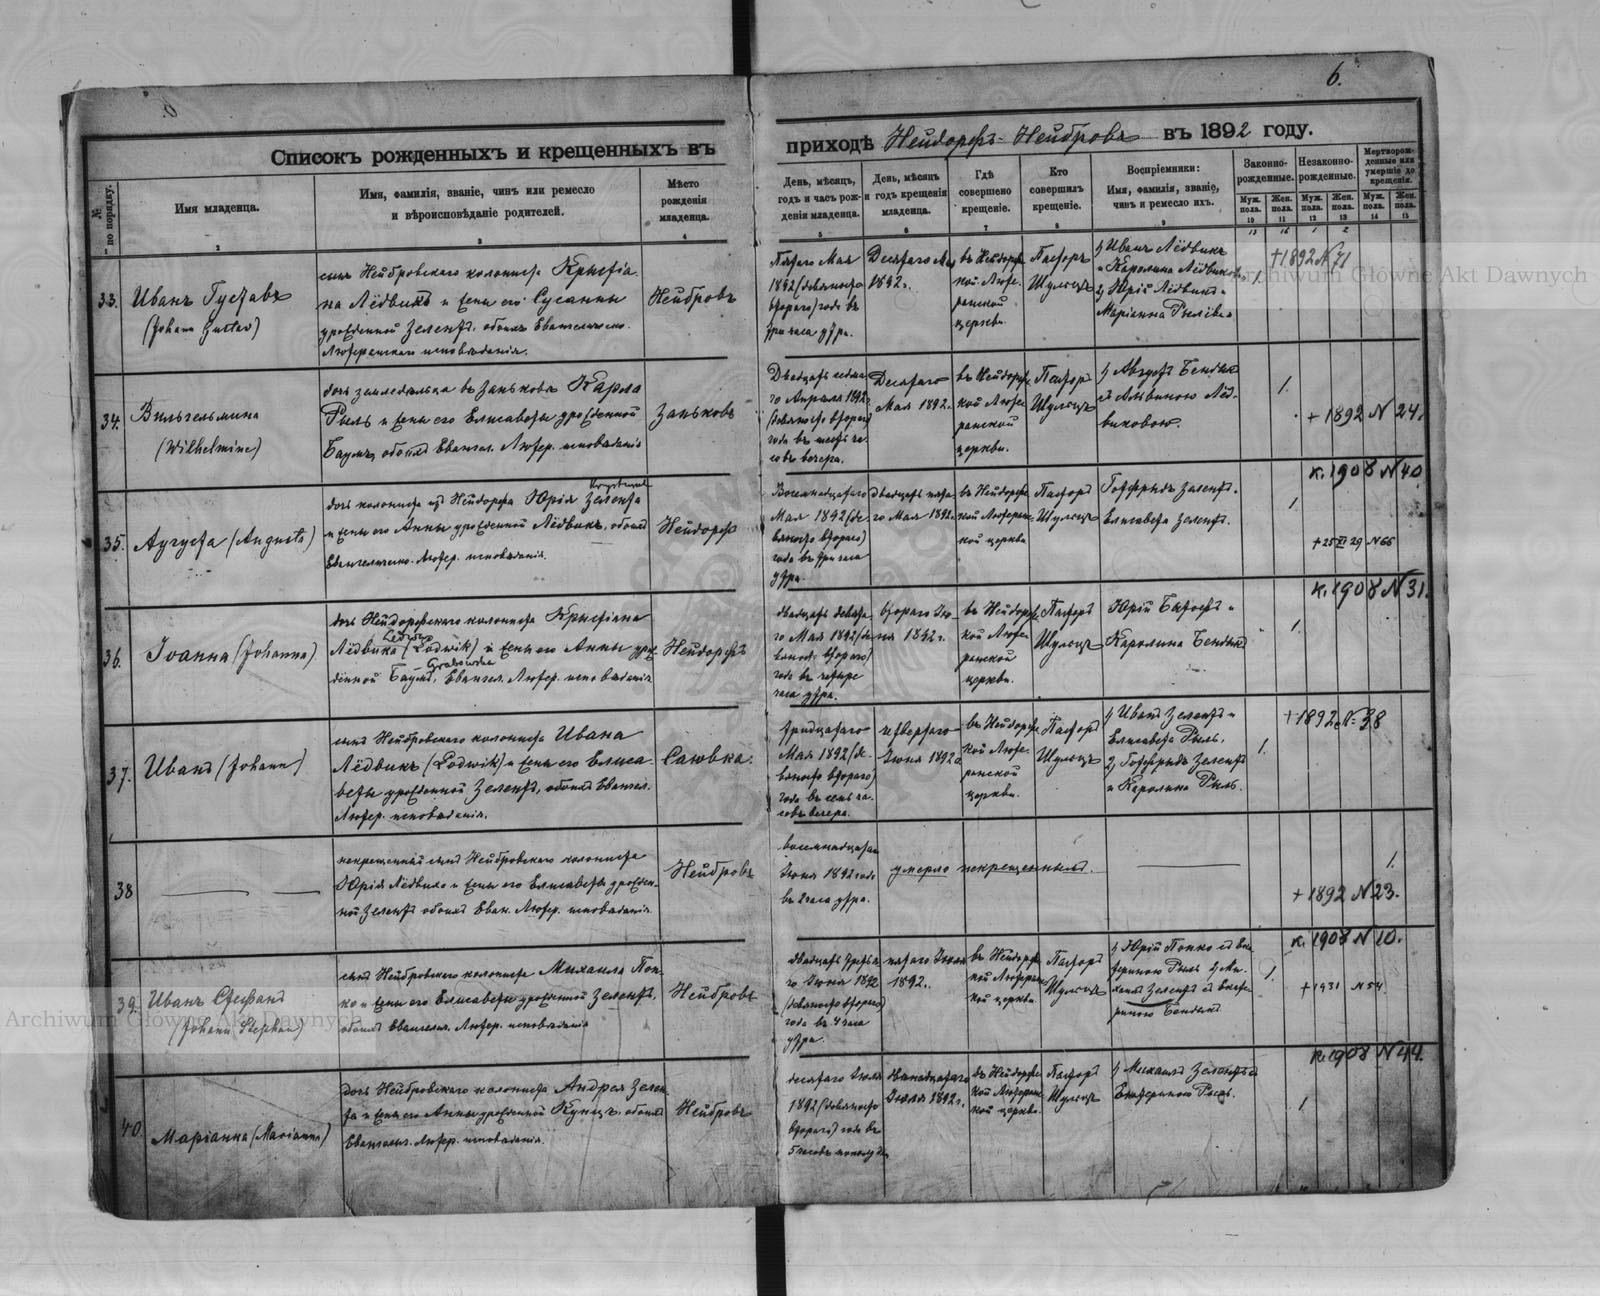 6.
Списокъ рожденныхъ и крещенныхъ въ
приходѣ Нейдорфъ-Нейбровъ въ 1892 году.
№ по порядку.
Имя младенца.
Имя, фамилія, званіе, чинъ или ремесло
и вѣроисповѣданіе родителей.
Мѣсто
рожденія
младенца.
День, мѣсяцъ,
годъ и часъ рож-
денія младенца.
День, мѣсяцъ
и годъ крещенія
младенца.
Гдѣ
совершено
крещеніе.
Кто
совершилъ
крещеніе.
Воспріемники:
Имя, фамилія, званіе,
чинъ и ремесло ихъ.
Законно-
рожденные.
Незаконно-
рожденные.
Мертворож-
денные или
умершіе до
крещенія.
Муж.
пола.
Жен.
пола.
Муж.
пола.
Жен.
пола.
Муж.
пола.
Жен.
пола.
1 2 3 4 5 6 7 8 9 10 11 12 13 14 15
33.
Иванъ Густавъ
(Johann Gustav)
сынъ Нейбровскаго колониста Крыстіа-
на Лёдвикъ и жены его Сусанны
урожденной Зелентъ, обоихъ Евангелическо-
Лютеранскаго исповѣданія.
Нейбровъ
Пятаго Мая
1892 (девяносто
второго) года въ
три часа утра.
Десятаго Мая
1892 г.
въ Нейдорф-
ской Люте-
ранской
церкви.
Пасторъ
Шульцъ
1) Иванъ Лёдвикъ
и Каролина Лёдвикъ
2) Юрій Лёдвикъ и
Маріанна
1.
+1892 N 71
34.
Вильгельмина
(Wilhelmine)
дочь земледѣльца въ Заньковѣ Карола
Рыль и жены его Елисаветы урожденной
Баумъ, обоихъ Евангел. Лютер. исповѣданія
Заньковъ
Двадцать седьма-
го Апрѣля 1892 г.
(девяносто второго)
года въ шесть ча-
совъ вечера.
Десятаго
Мая 1892 г.
въ Нейдорф-
ской Люте-
ранской
церкви.
Пасторъ
Шульцъ
1) Августъ Бендикъ
съ Альвиною Лёд-
виковою.
1.
+ 1892 N 24.
35.
Аугуста (Augusta)
дочь колониста изъ Нейдорфа Юрія Зелента
и жены его Анны урожденной Лёдвикъ, обоихъ
Евангелическо-Лютер. исповѣданія.
Нейдорфъ
Восемнадцатаго
Мая 1892 (де-
вяносто второго)
года въ три часа
утра.
Двадцать пята-
го Мая 1892 г.
въ Нейдорфс-
кой Лютеран-
ской церкви
Пасторъ
Шульцъ
Готфридъ Зелентъ.
Елисавета Зелентъ.
1.
к. 1908 N 40.
+ 25 29 N 66
36.
Іоанна (Johanna)
дочь Нейдорфскаго колониста Крыстіана
Лёдвика (Lodwik) и жены его Анны урож-
денной Баумъ, Евангел. Лютер. исповѣданія
Grabowska
Нейдорфъ
двадцать девята-
го Мая 1892 (де-
вяност. второго)
года въ четыре
часа утра.
второго Iю-
ня 1892 г.
въ Нейдорфс-
кой Люте-
ранской
церкви.
Пасторъ
Шульцъ
Юрій и
Каролина Бендикъ
1.
к. 1908 N 31.
37.
Иванъ (Johann)
сынъ Нейбровскаго колониста Ивана
Лёдвикъ (Lodwik) и жены его Елиса-
веты урожденной Зелентъ, обоихъ Евангел.
Лютер. исповѣданія.
Саювка.
тридцатаго
Мая 1892 (де-
вяносто второго)
года въ семь ча-
совъ вечера.
четвертаго
Іюня 1892 г.
въ Нейдорфс-
кой Люте-
ранской
церкви.
Пасторъ
Шульцъ
1) Иванъ Зелентъ и
Елисавета Рыль.
2) Готфридъ Зелентъ
и Каролина Рыль.
1.
+1892 N 38
38
некрещенный сынъ Нейбровскаго колониста
Юрія Лёдвика и жены его Елисаветы урожден-
ной Зелентъ обоихъ Еван. Лютер. исповѣданія.
Нейбровъ
восемнадцатаго
Іюня 1892 года
въ 2 часа утра.
умерло некрещеннымъ.
1.
+ 1892 N 23.
39.
Иванъ Стефанъ
(Johann Stephan)
сынъ Нейбровскаго колониста Михаила Поп-
ко и жены его Елисаветы урожденной Зелентъ,
обоихъ Евангелич. Лютер. исповѣданія
Нейбровъ
двадцать третья-
го Іюня 1892
(девяносто второго)
года въ 4 часа
утра.
пятаго Іюля
1892.
въ Нейдорфс-
кой Лютеранс-
кой церкви.
Пасторъ
Шульцъ
1) Юрій Попко съ Ека-
териною Рыль 2) Ми-
хаилъ Зелентъ съ Екате-
риною Бендикъ
1.
к. 1908 N 10.
+ 1931 N 54
40.
Маріанна (Marianna)
дочь Нейбровскаго колониста Андрея Зелен-
та и жены его Анны урожденной Кунцъ, обоихъ
Евангелич. Лютер. исповѣданія.
Нейбровъ
десятаго Іюля
1892 (девяносто
второго) года въ
5 часовъ пополудни
двѣнадцатаго
Іюля 1892 г.
въ Нейдорфс-
кой Лютеранс-
кой церкви.
Пасторъ
Шульцъ
1) Михаилъ Зелентъ съ
Екатериною Рыль.
1.
к. 1908 N 44.
Archiwum Główne Akt Dawnych
Archiwum Główne Akt Dawnych